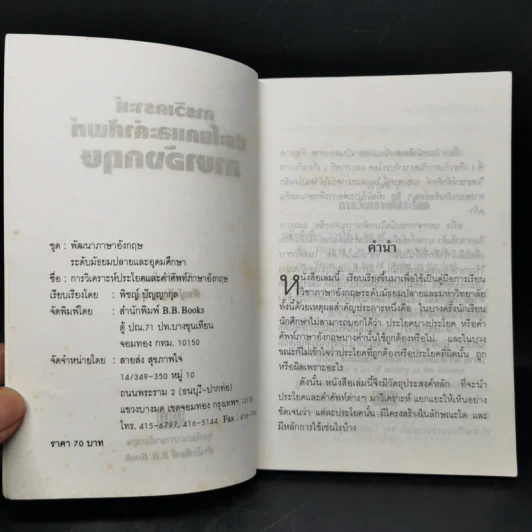 ชุด : พัฒนาภาษาอังกฤษ
ระดับมัธยมปลายและอุดมศึกษา
ชื่อ : การวิเคราะห์ประโยคและคำศัพท์ภาษาอังกฤษ
เรียบเรียงโดย : พิชญ์ ปัญญากุล
จัดพิมพ์โดย : สำนักพิมพ์ B.B. Books
ตู้ ปณ.71 ปท.บางขุนเทียน
จอมทอง กทม. 10150
จัดจำหน่ายโดย : สายส่ง สุขภาพใจ
14/349-350 หมู่ 10
ถนนพระราม 2 (ธนบุรี-ปากท่อ)
แขวงบางมด เขตจอมทอง กรุงเทพฯ 10150
โทร. 415-6797, 416-5144 Fax : 416-
ราคา 70 บาท
คำนำ
หนังสือเล่มนี้ เรียบเรียงขึ้นมาเพื่อใช้เป็นคู่มือการเรียน
วิชาภาษาอังกฤษระดับมัธยมปลายและมหาวิทยาลัย
ทั้งนี้ด้วยเหตุผลสำคัญประการหนึ่งคือ ในบางครั้งนักเรียน
นักศึกษาไม่สามารถบอกได้ว่า ประโยคบางประโยค หรือคำ
ศัพท์ภาษาอังกฤษบางคำนั้นใช้ถูกต้องหรือไม่ และในบาง
ขณะก็ไม่เข้าใจว่าประโยคที่ถูกต้องหรือประโยคที่ผิดนั้น ถูก
หรือผิดเพราะอะไร
ดังนั้น หนังสือเล่มนี้จึงมีวัตถุประสงค์หลัก ที่จะนำ
ประโยคและคำศัพท์ต่างๆ มาวิเคราะห์ แยกแยะให้เห็นอย่าง
ชัดเจนว่า แต่ละประโยคนั้น มีโครงสร้างในลักษณะใด และ
มีหลักการใช้เช่นไรบ้าง